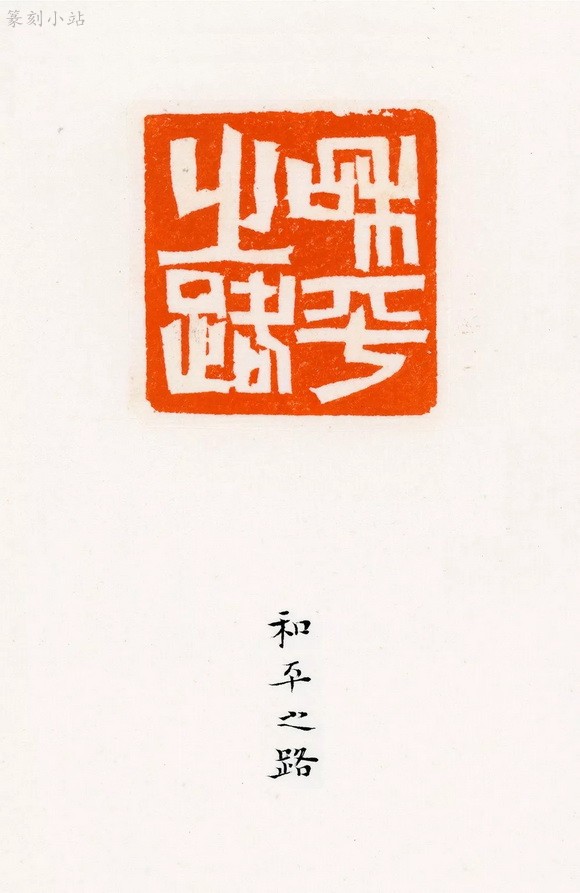 篆刻小站
和平
之路
和平之路